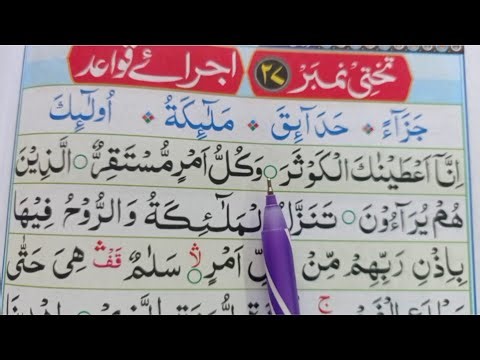 تختی نمبر ۲۷ اجرائے قواعد
جَزَآءً حَدَآئِقَ مَلٰٓئِكَةُ اُولٰٓئِكَ
اِنَّآ اَعْطَيْنٰكَ الْكَوْثَرَ ○ وَكُلُّ اَمْرٍ مُّسْتَقِرٌّ ○ الَّذِيْنَ
هُمْ يُرَآءُوْنَ ○ تَنَزَّلُ الْمَلٰٓئِكَةُ وَالرُّوْحُ فِيْهَا
بِاِذْنِ رَبِّهِمْ مِّنْ اَمْرٍ ○ لا سَلٰمٌ قف هِىَ حَتّٰى